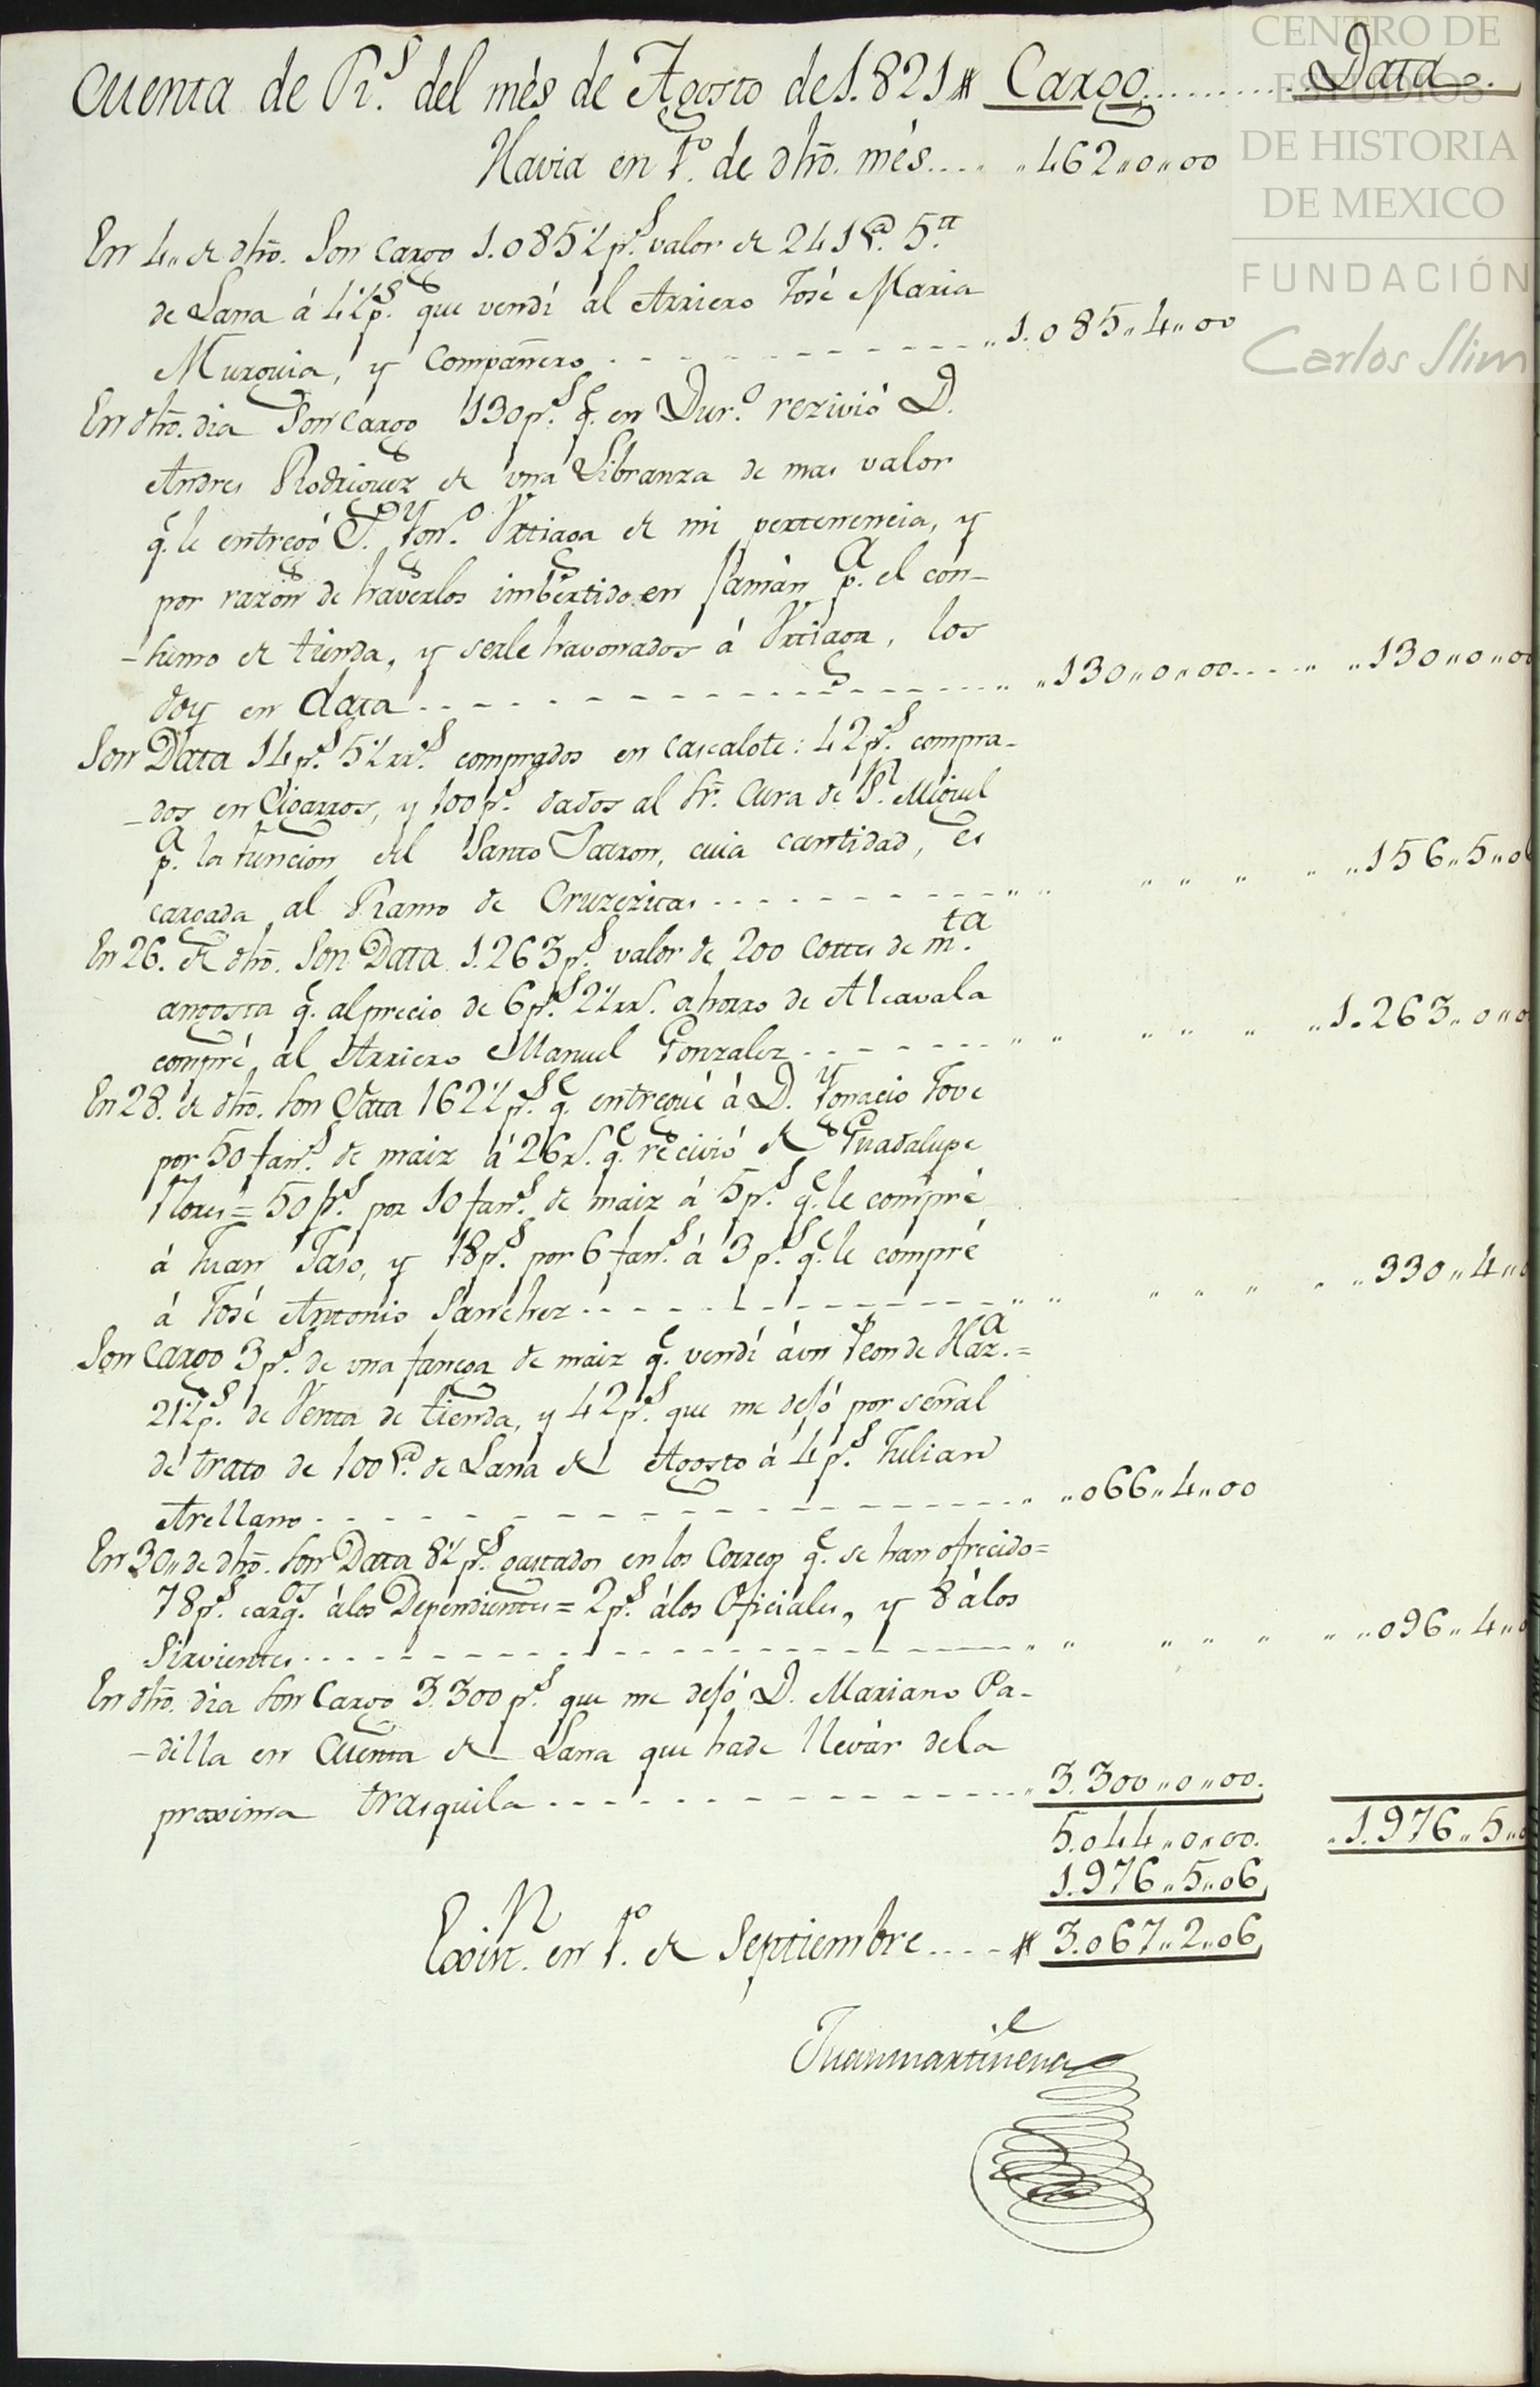 CENTRO DE
ESTUDIOS
DE HISTORIA
DE MEXICO
FUNDACIÓN
Carlos Slim
Cuenta de Rs. del més de Agosto de 1.821 # Cargo.......... Data..
Havia en 1º. de dho. més.... „462„0„00
En 4„ de dho. Son cargo 1.085½ ps. valor de 241 @. 5 tt
de Lana á 4½ ps. que vendí al Arriero José Maria
Murguia, y Compañero - - - - - - - - - „1.085„4„00
En dho. dia Son Cargo 130 ps. q. en Duro. rezivió D.
Andres Rodriguez de una Libranza de mas valor
q. le entregó D. Ygno. Urtiaga de mi pertenencia, y
por razon de haverlos imbertido en Saman pa. el con-
-sumo de tienda, y serle havonados á Urtiaga, los
doy en data - - - - - - - - - „ „130„0„00 - - - „ „130„0„00
Son Data 14 ps. 5½ rrs. comprados en Cascalote: 42 ps. compra-
-dos en Cigarros, y 100 ps. dados al Sr. Cura de Sn. Miguel
pa. la funcion del Santo Patron, cuia cantidad, es
cargada al Ramo de Cruzeritas - - - - - - „ „ „ „ „ „ „156„5„0
En 26. de dho. Son Data 1.263 ps. valor de 200 Cortes de mta.
angosta q. al precio de 6 ps. 2½ rrs. ahorro de Alcavala
compré al Arriero Manuel Gonzalez - - - - - „ „ „ „ „ „1.263„0„0
En 28. de dho. Son Data 162½ ps. q. entregué á D. Ygnacio Tove
por 50 fans. de maiz á 26 rs. q. recivió de Guadalupe
Flores = 50 ps. por 10 fans. de maiz á 5 ps. q. le compré
á Juan Jaso, y 18 ps. por 6 fans. á 3 ps. q. le compré
á José Antonio Sanchez - - - - - - - - „ „ „ „ „ „ „330„4„0
Son Cargo 3 ps. de una fanega de maiz q. vendí á un Peon de Haza. =
21½ ps. de Venta de tienda, y 42 ps. que me dejó por señal
de trato de 100 @. de Lana de Agosto á 4 ps. Julian
Arellano - - - - - - - - - - „ „066„4„00
En 30„ de dho. Son Data 8½ ps. gastados en los Correos q. se han ofrecido =
78 ps. cargos. á los Dependientes = 2 ps. á los Oficiales, y 8 á los
Sirvientes - - - - - - - - - - „ „ „ „ „ „ „096„4„0
En dho. dia Son Cargo 3.300 ps. que me dejó D. Mariano Pa-
-dilla en Cuenta de Lana que hade llevár de la
proxima trasquila - - - - - - - - - „ 3.300„0„00.
5.044„0„00. „1.976„5„0
1.976„5„06
Exisn. en 1º. de Septiembre.... # 3.067„2„06
Juanmartiñena